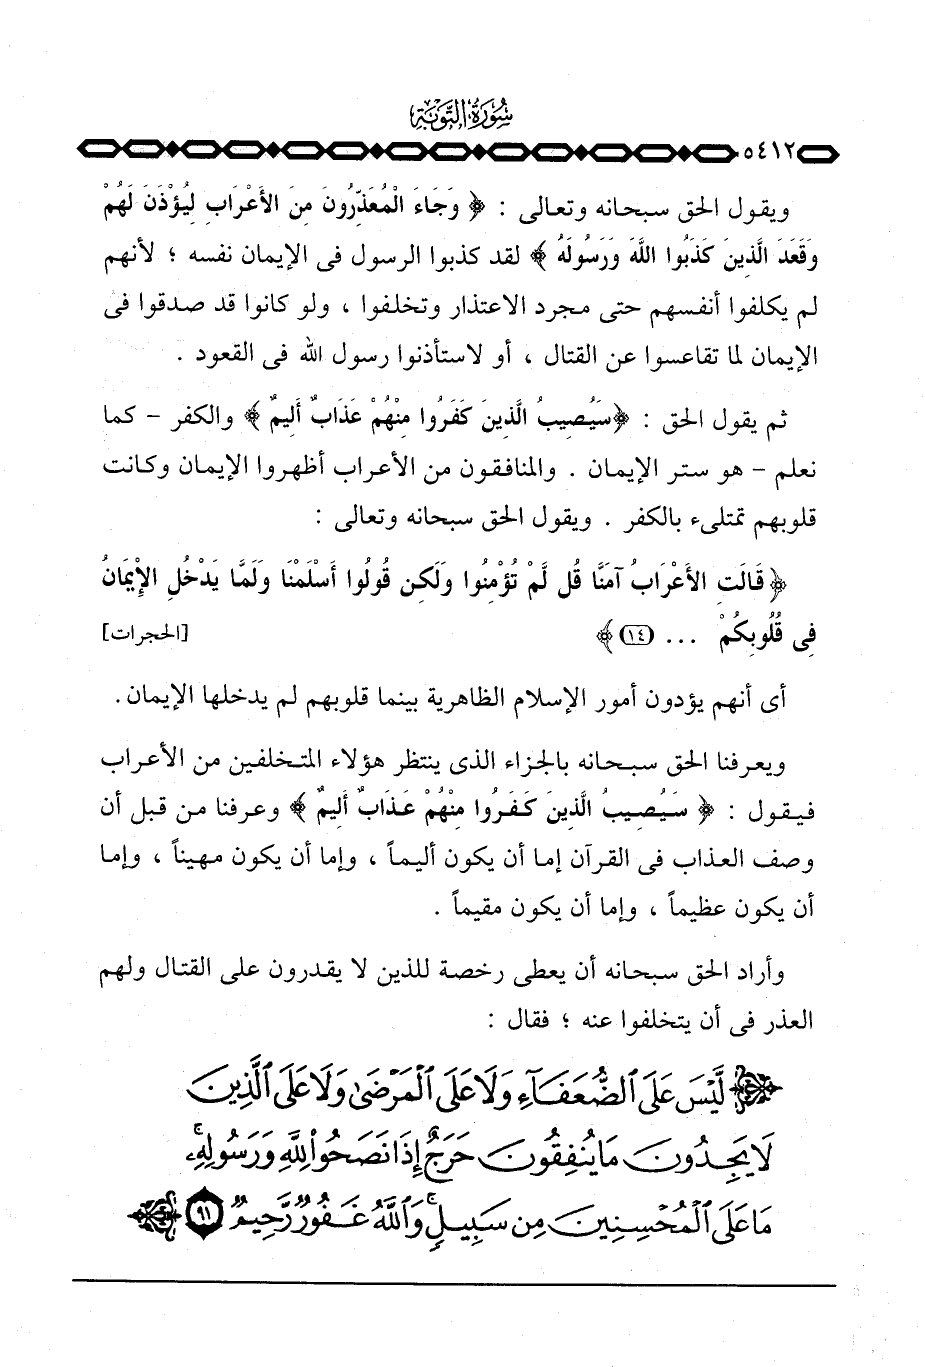 سُورَةُ التَّوْبَةِ
٥٤١٢
ويقول الحق سبحانه وتعالى : ﴿ وَجَاءَ الْمُعَذِّرُونَ مِنَ الأَعْرَابِ لِيُؤْذَنَ لَهُمْ
وَقَعَدَ الَّذِينَ كَذَبُوا اللَّهَ وَرَسُولَهُ ﴾ لقد كذبوا الرسول فى الإيمان نفسه ؛ لأنهم
لم يكلفوا أنفسهم حتى مجرد الاعتذار وتخلفوا ، ولو كانوا قد صدقوا فى
الإيمان لما تقاعسوا عن القتال ، أو لاستأذنوا رسول الله فى القعود .
ثم يقول الحق : ﴿سَيُصِيبُ الَّذِينَ كَفَرُوا مِنْهُمْ عَذَابٌ أَلِيمٌ ﴾ والكفر - كما
نعلم - هو ستر الإيمان . والمنافقون من الأعراب أظهروا الإيمان وكانت
قلوبهم تمتلىء بالكفر . ويقول الحق سبحانه وتعالى :
﴿قَالَتِ الأَعْرَابُ آمَنَّا قُل لَّمْ تُؤْمِنُوا وَلَكِن قُولُوا أَسْلَمْنَا وَلَمَّا يَدْخُلِ الإِيمَانُ
فِى قُلُوبِكُمْ ... (١٤) ﴾ [الحجرات]
أى أنهم يؤدون أمور الإسلام الظاهرية بينما قلوبهم لم يدخلها الإيمان.
ويعرفنا الحق سبحانه بالجزاء الذى ينتظر هؤلاء المتخلفين من الأعراب
فيقول : ﴿ سَيُصِيبُ الَّذِينَ كَفَرُوا مِنْهُمْ عَذَابٌ أَلِيمٌ ﴾ وعرفنا من قبل أن
وصف العذاب فى القرآن إما أن يكون أليماً ، وإما أن يكون مهيناً ، وإما
أن يكون عظيماً ، وإما أن يكون مقيماً .
وأراد الحق سبحانه أن يعطى رخصة للذين لا يقدرون على القتال ولهم
العذر فى أن يتخلفوا عنه ؛ فقال :
﴿ لَّيْسَ عَلَى ٱلضُّعَفَآءِ وَلَا عَلَى ٱلْمَرْضَىٰ وَلَا عَلَى ٱلَّذِينَ
لَا يَجِدُونَ مَا يُنفِقُونَ حَرَجٌ إِذَا نَصَحُوا۟ لِلَّهِ وَرَسُولِهِۦ ۚ
مَا عَلَى ٱلْمُحْسِنِينَ مِن سَبِيلٍ ۚ وَٱللَّهُ غَفُورٌ رَّحِيمٌ (٩١) ﴾